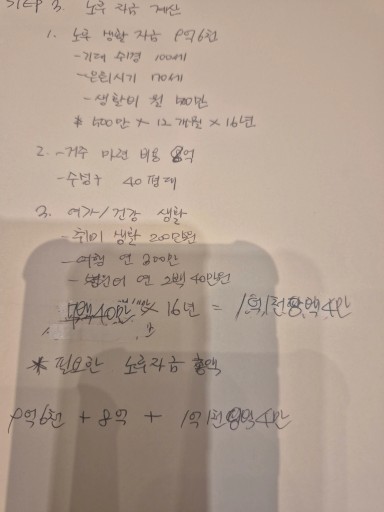 STEP 3. 노후 자금 계산
1. 노후 생활 자금 9억6천
- 기대 수명 100세
- 은퇴시기
- 생활비 월 500만
* 500만 × 12개월 × 16년
2. - 거주 마련 비용 8억
- 수성구 40평대
3. 여가/건강 생활
- 취미 생활 200만원
- 여행 연 300만
연 2백 40만원
× 16년 = 1억1천
* 필요한 노후자금 총액
9억6천 + 8억 + 1억1천